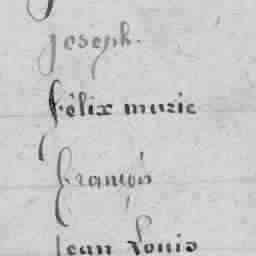 joseph.
félix marie
françois
jean Louis